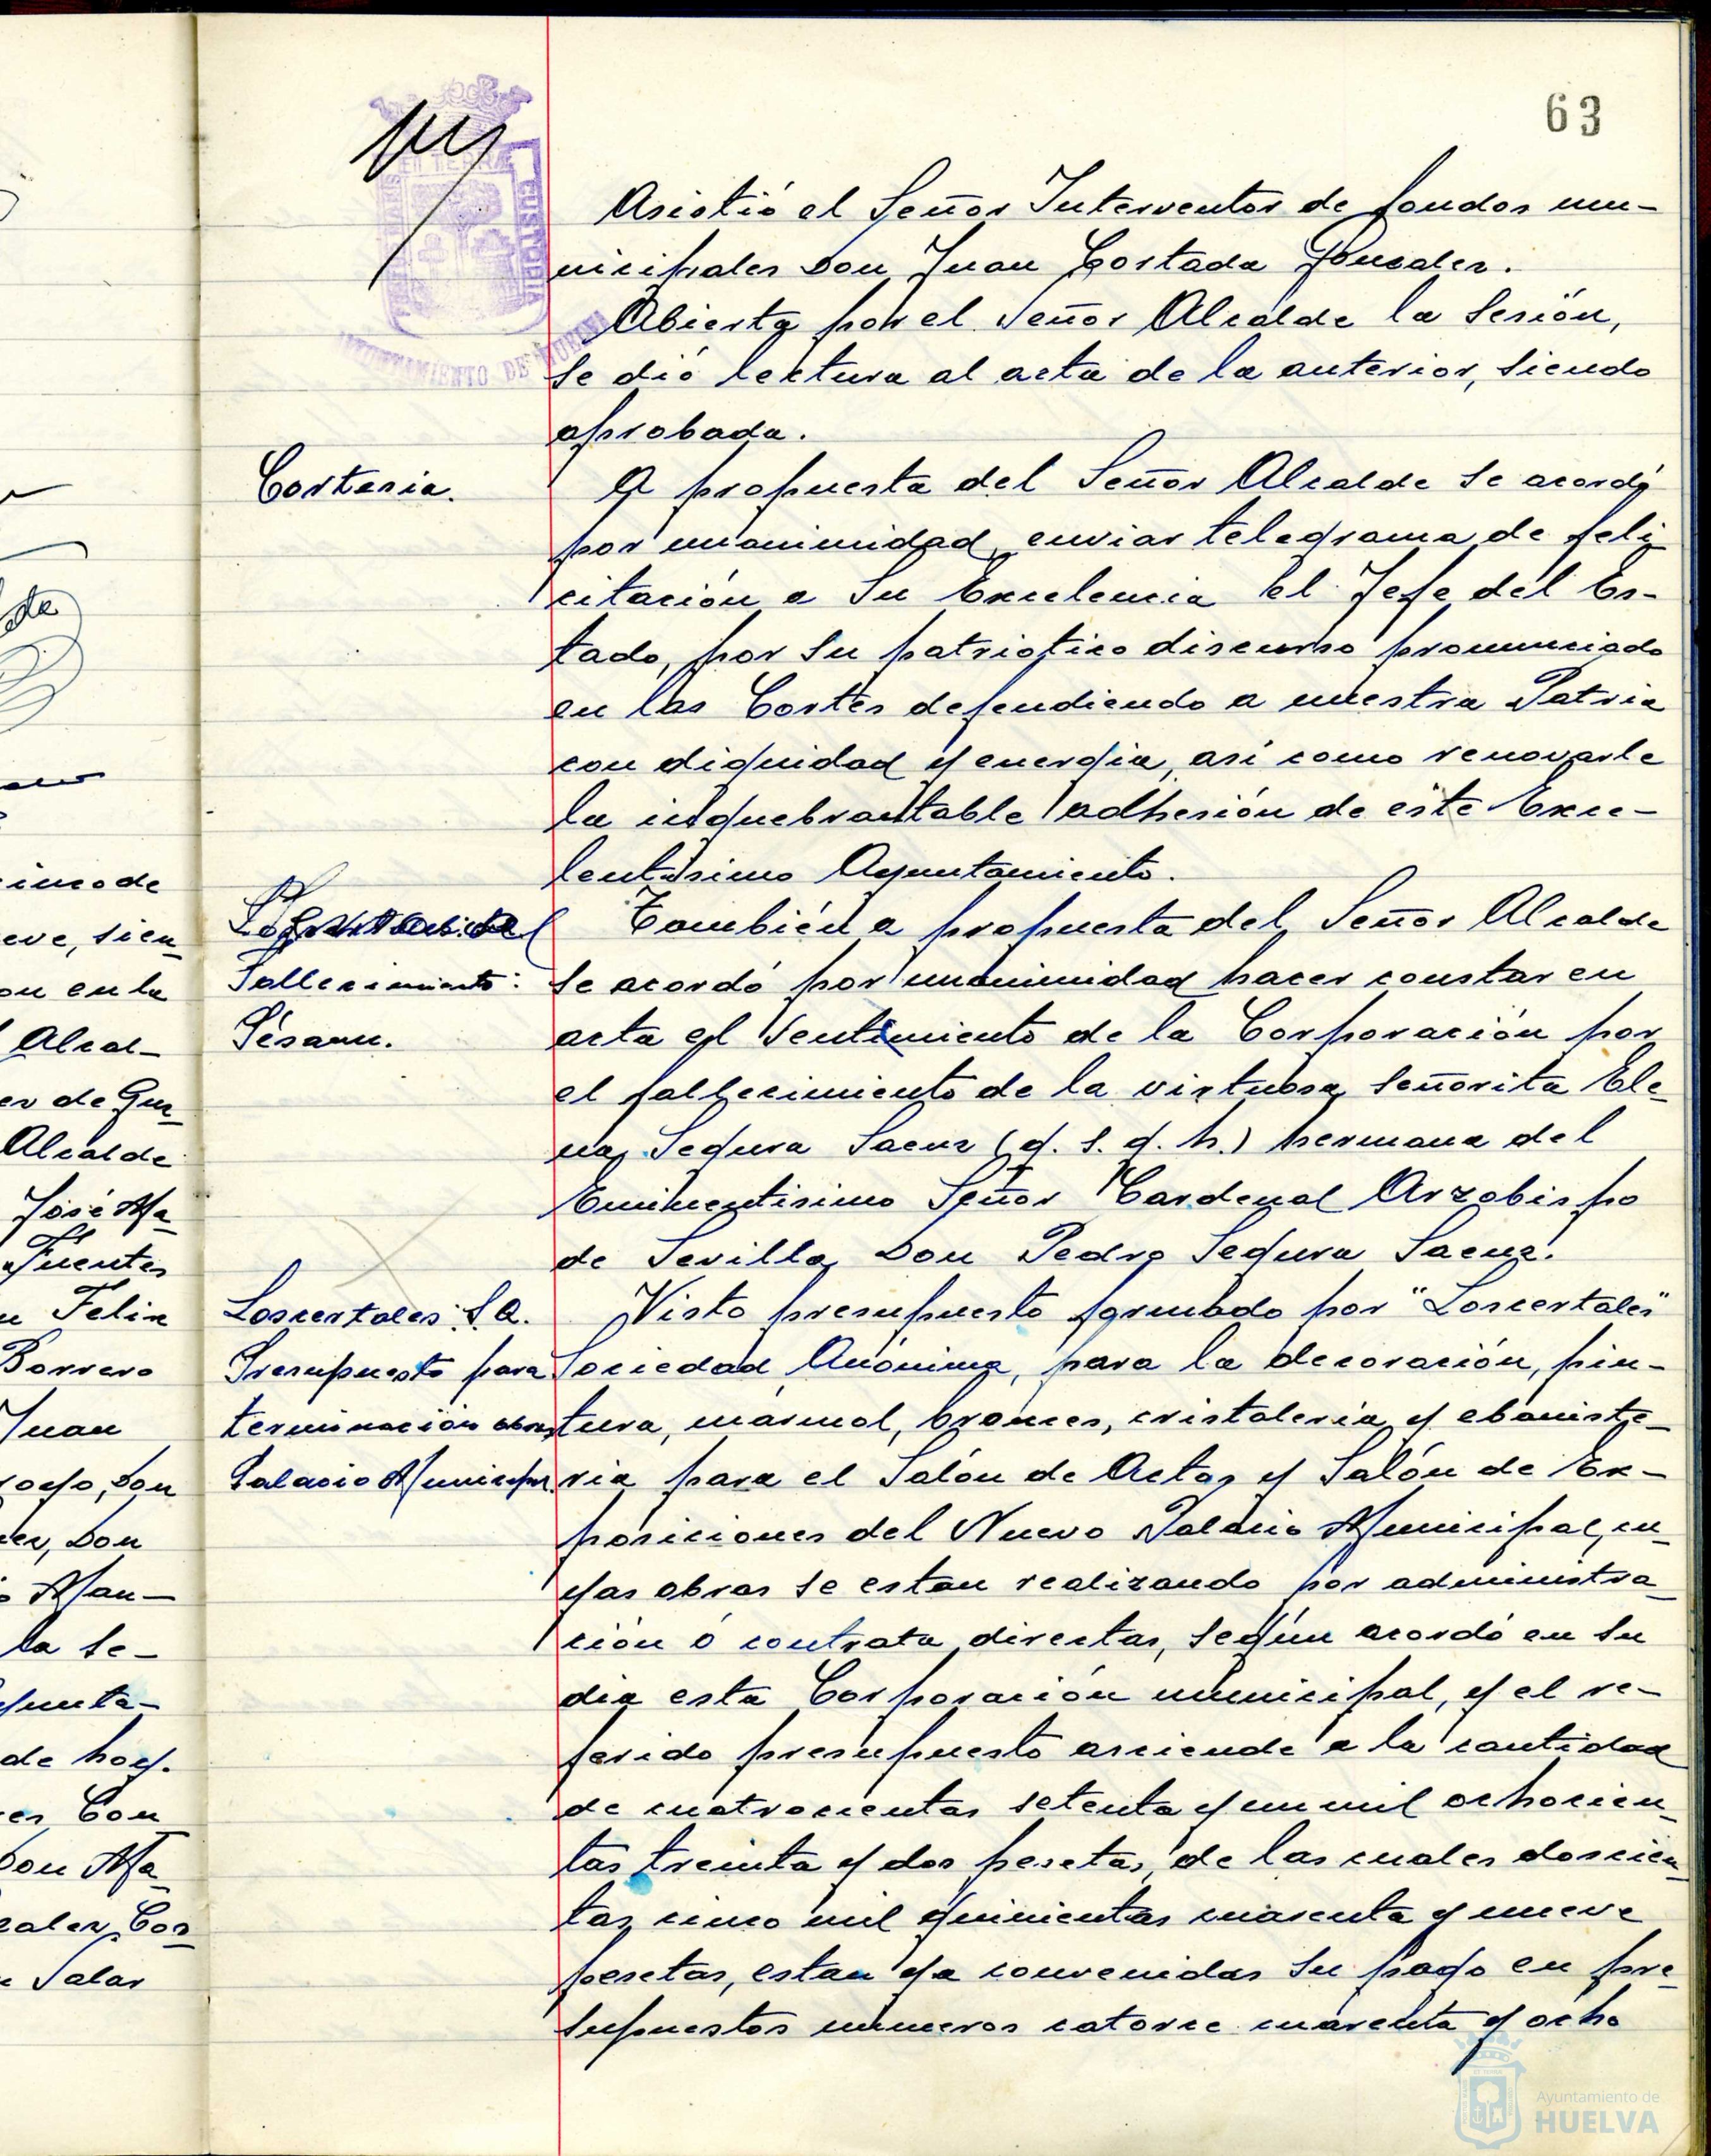 63
Asistió el Señor Interventor de fondos mu-
nicipales Don Juan Cortada Gonzalez.
Abierta por el Señor Alcalde la Sesión,
se dió lectura al acta de la anterior, siendo
aprobada.
Cortesia.
A propuesta del Señor Alcalde se acordó
por unanimidad enviar telegrama de feli-
citación a Su Excelencia el Jefe del Es-
tado, por su patriotico discurso pronunciado
en las Cortes defendiendo a nuestra Patria
con dignidad y energia, asi como renovarle
la inquebrantable adhesión de este Exce-
lentisimo Ayuntamiento.
Fallecimiento:
Pésame.
También a propuesta del Señor Alcalde
se acordó por unanimidad hacer constar en
acta el sentimiento de la Corporación por
el fallecimiento de la virtuosa Señorita Ele-
na Segura Saenz (q. s. g. h.) hermana del
Eminentisimo Señor Cardenal Arzobispo
de Sevilla Don Pedro Segura Saenz.
Loscertales S.A.
Presupuesto para
terminación obras
Palacio Municipal
Visto presupuesto formulado por "Loscertales"
Sociedad Anónima, para la decoración, pin-
tura, mármol, bronces, cristaleria y ebaniste-
ria para el Salón de Actos y Salón de Ex-
posiciones del Nuevo Palacio Municipal, cu-
yas obras se estan realizando por administra-
ción ó contrata directas, según acordó en su
dia esta Corporación municipal, y el re-
ferido presupuesto asciende a la cantidad
de cuatrocientas setenta y un mil ochocien-
tas treinta y dos pesetas, de las cuales doscien-
tas cinco mil quinientas cuarenta y nueve
pesetas, estan ya convenidas su pago en pre-
supuestos numeros catorce cuarenta y ocho
CUSTODIA
AYUNTAMIENTO DE HUELVA
Ayuntamiento de
HUELVA